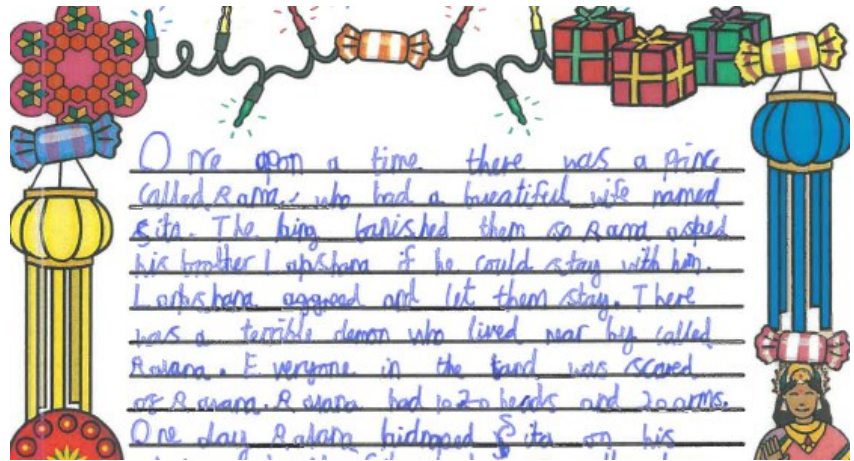 Once apon a time there was a prince
called Rama, who had a bueatiful wife named
Sita. The king banished them so Rama asked
his brother Lakshana if he could stay with him.
Lakshana aggreed and let them stay. There
was a terrible demon who lived near by called
Ravana. Everyone in the land was scared
of Ravana. Ravana had heads and 20 arms.
One day Ravana kidnaped Sita on his